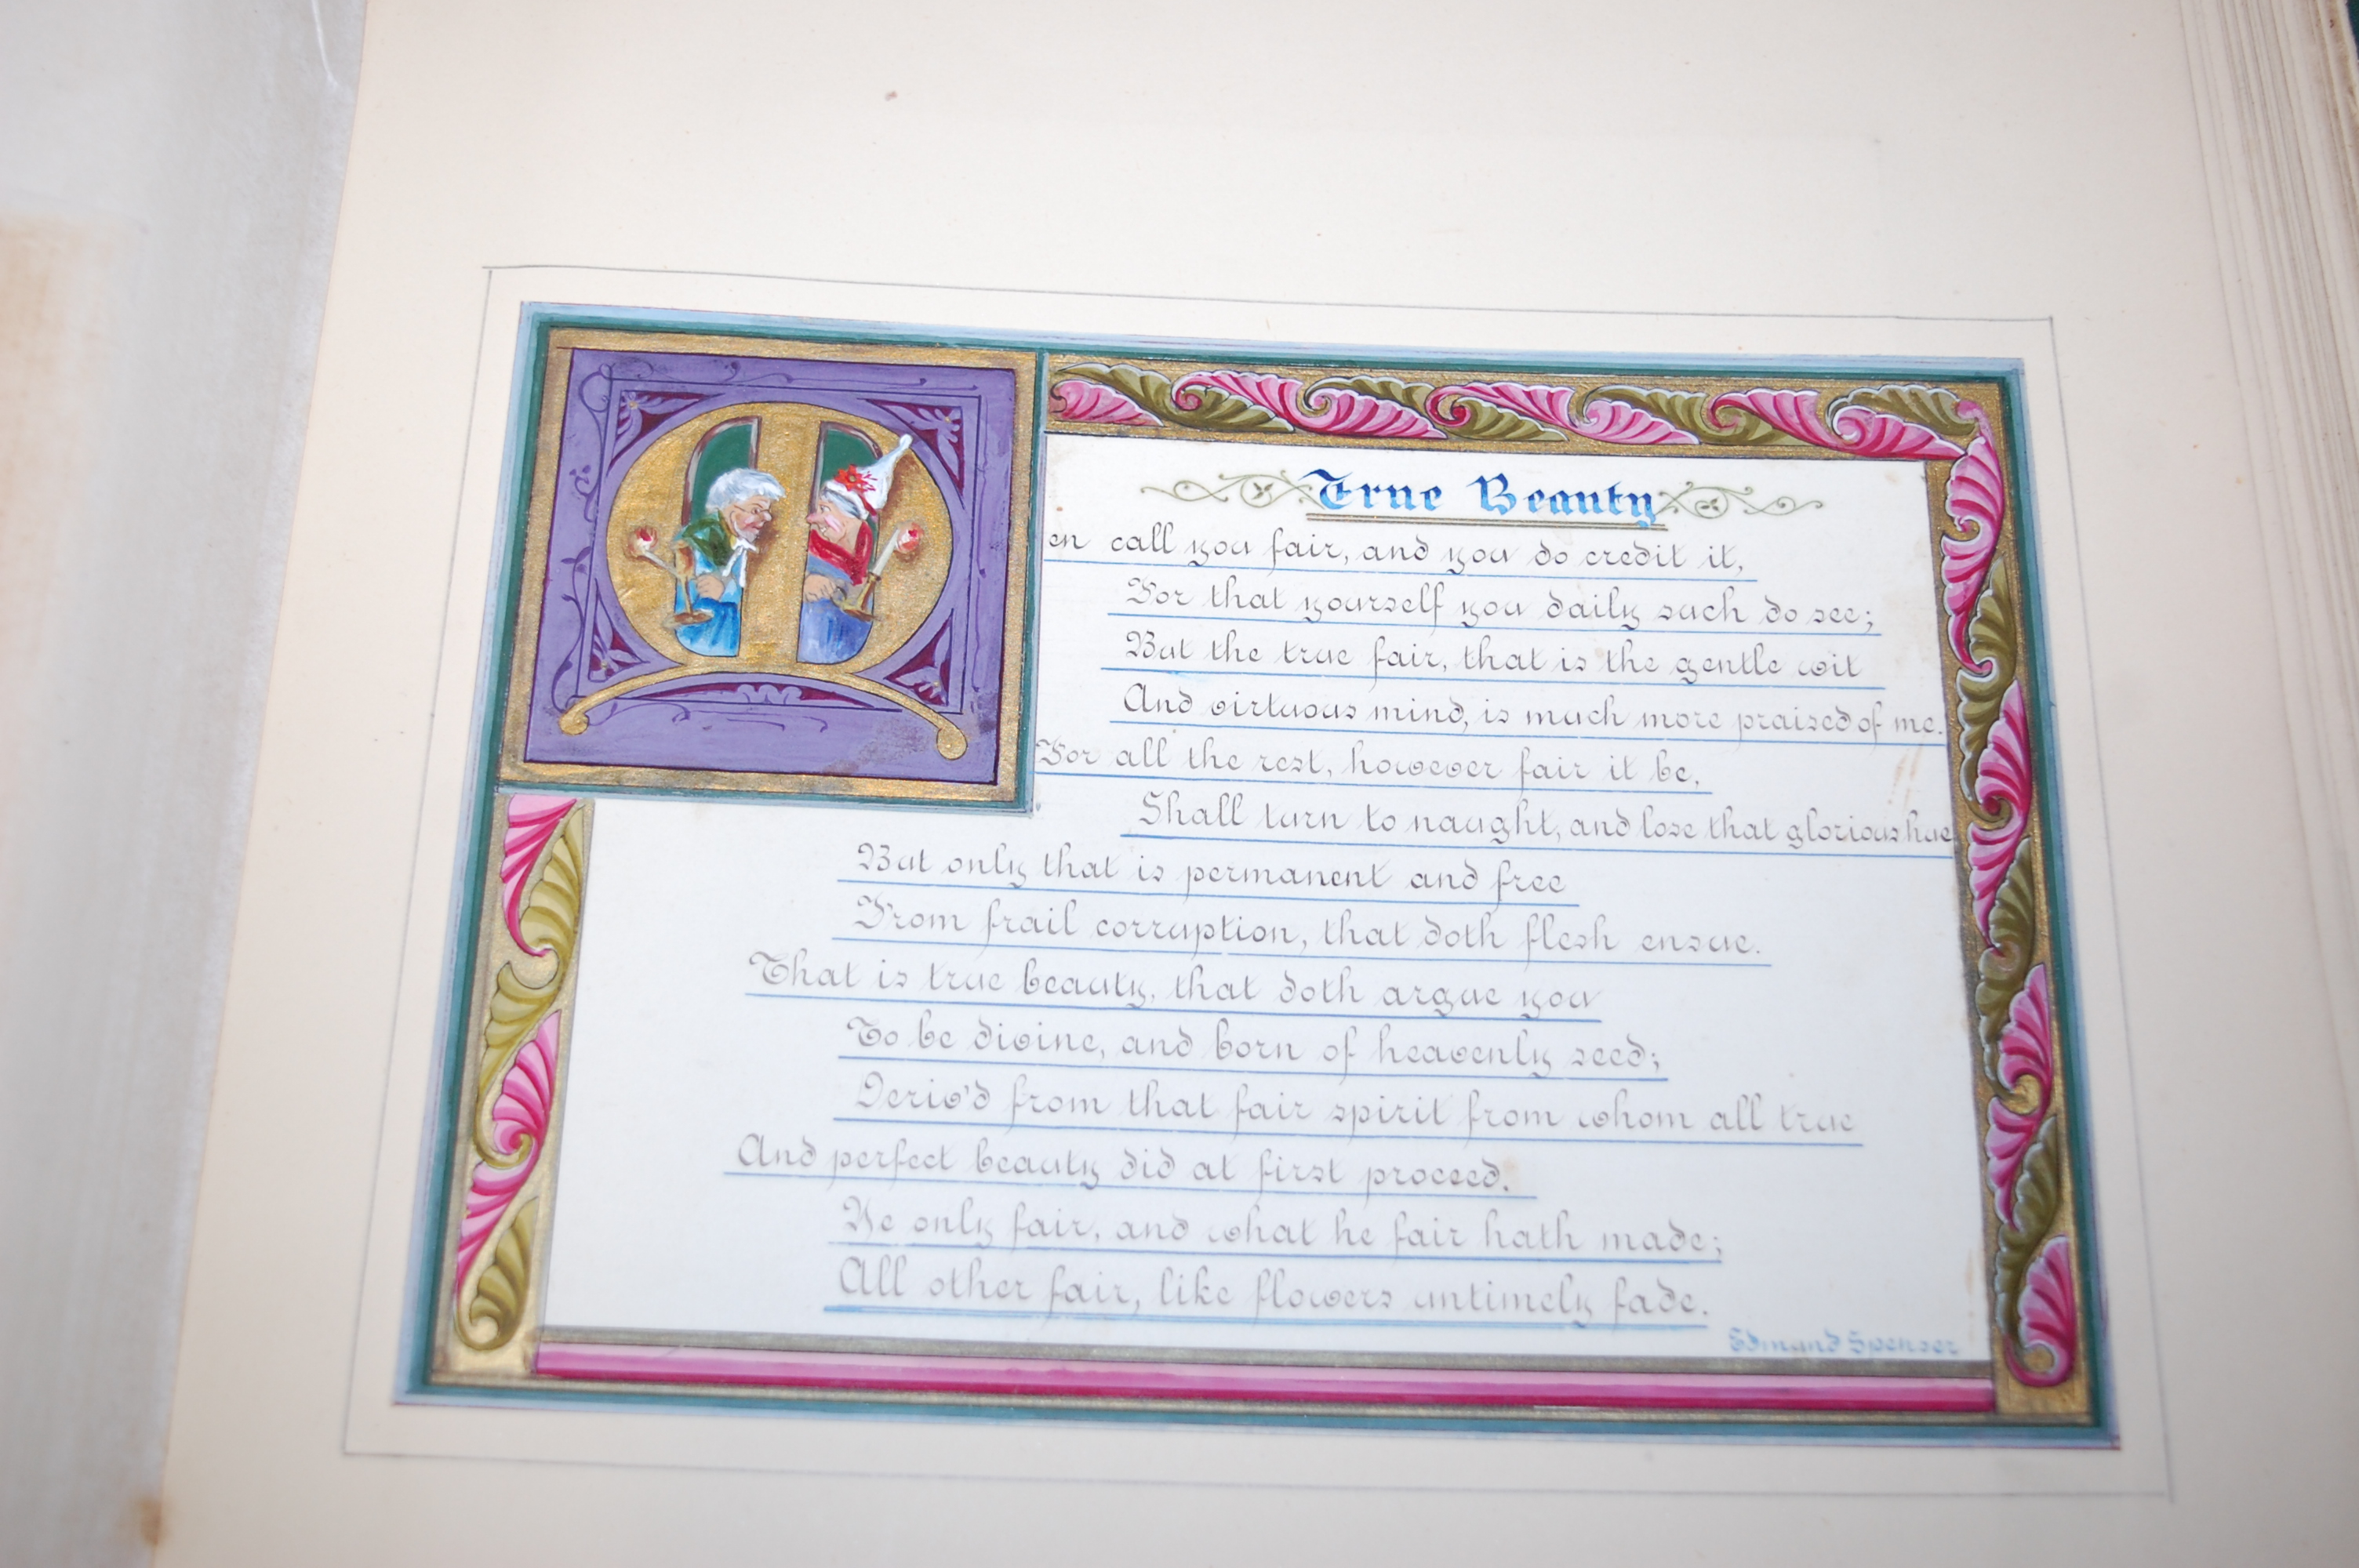 True Beauty
Men call you fair, and you do credit it,
For that yourself you daily such do see;
But the true fair, that is the gentle wit
And virtuous mind, is much more praised of me.
For all the rest, however fair it be,
Shall turn to naught, and lose that glorious hue
But only that is permanent and free
From frail corruption, that doth flesh ensue.
That is true beauty, that doth argue you
To be divine, and born of heavenly seed;
Deriv'd from that fair spirit from whom all true
And perfect beauty did at first proceed.
He only fair, and what he fair hath made;
All other fair, like flowers untimely fade.
Edmund Spenser